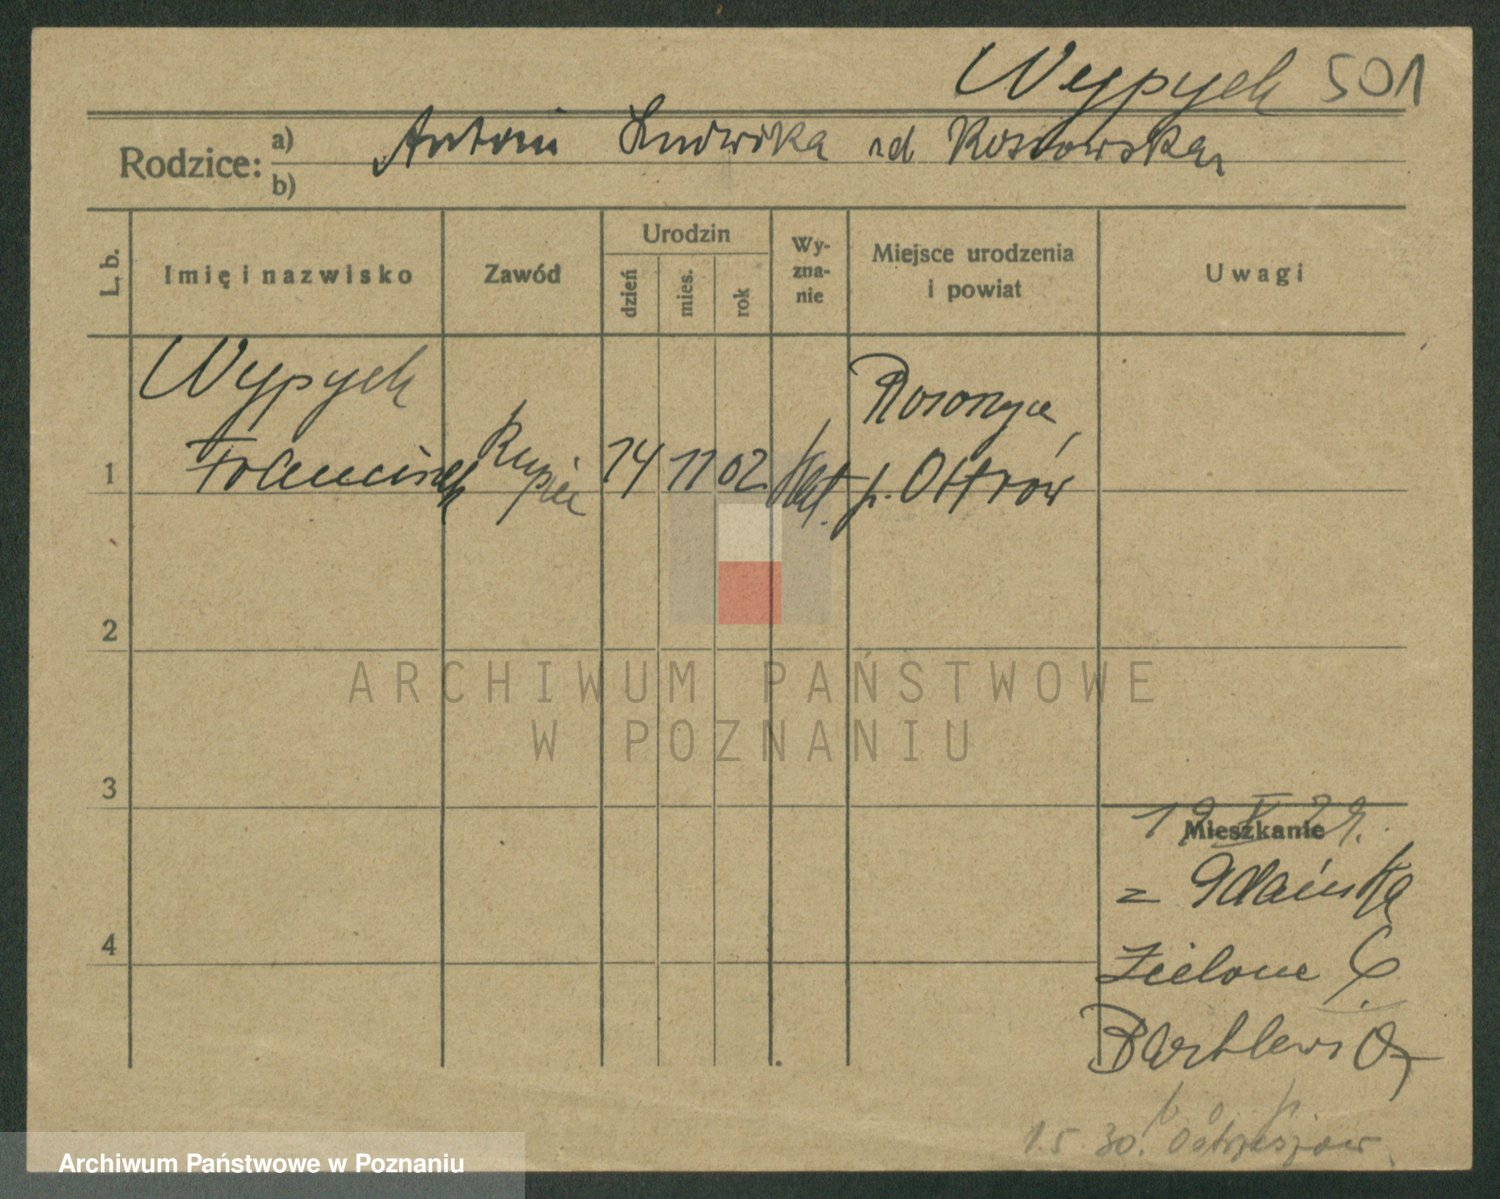 Wypych 501
Rodzice: a) b)
Antoni Ludwika zd Kossowska
L. b.
Imię i nazwisko
Zawód
Urodzin
dzień
mies.
rok
Wy-
zna-
nie
Miejsce urodzenia
i powiat
Uwagi
1
Wypych
Franciszek
Kupiec
14
11
02
kat.
p. Ostrów
2
3
4
Mieszkanie
z Gdańska
Zielone 6
1.5.30. Ostrzeszów
ARCHIWUM PAŃSTWOWE
W POZNANIU
Archiwum Państwowe w Poznaniu